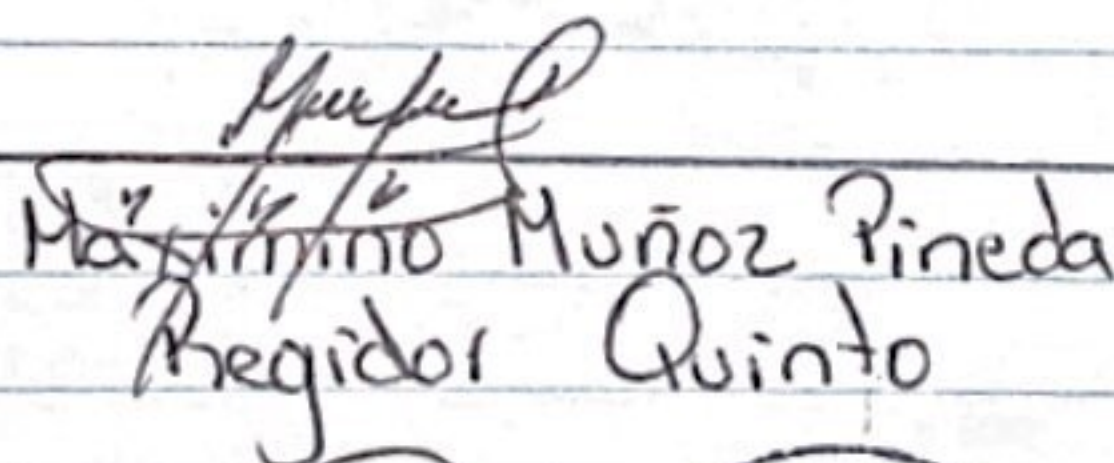 Máximino Muñoz Pineda
Regidor Quinto